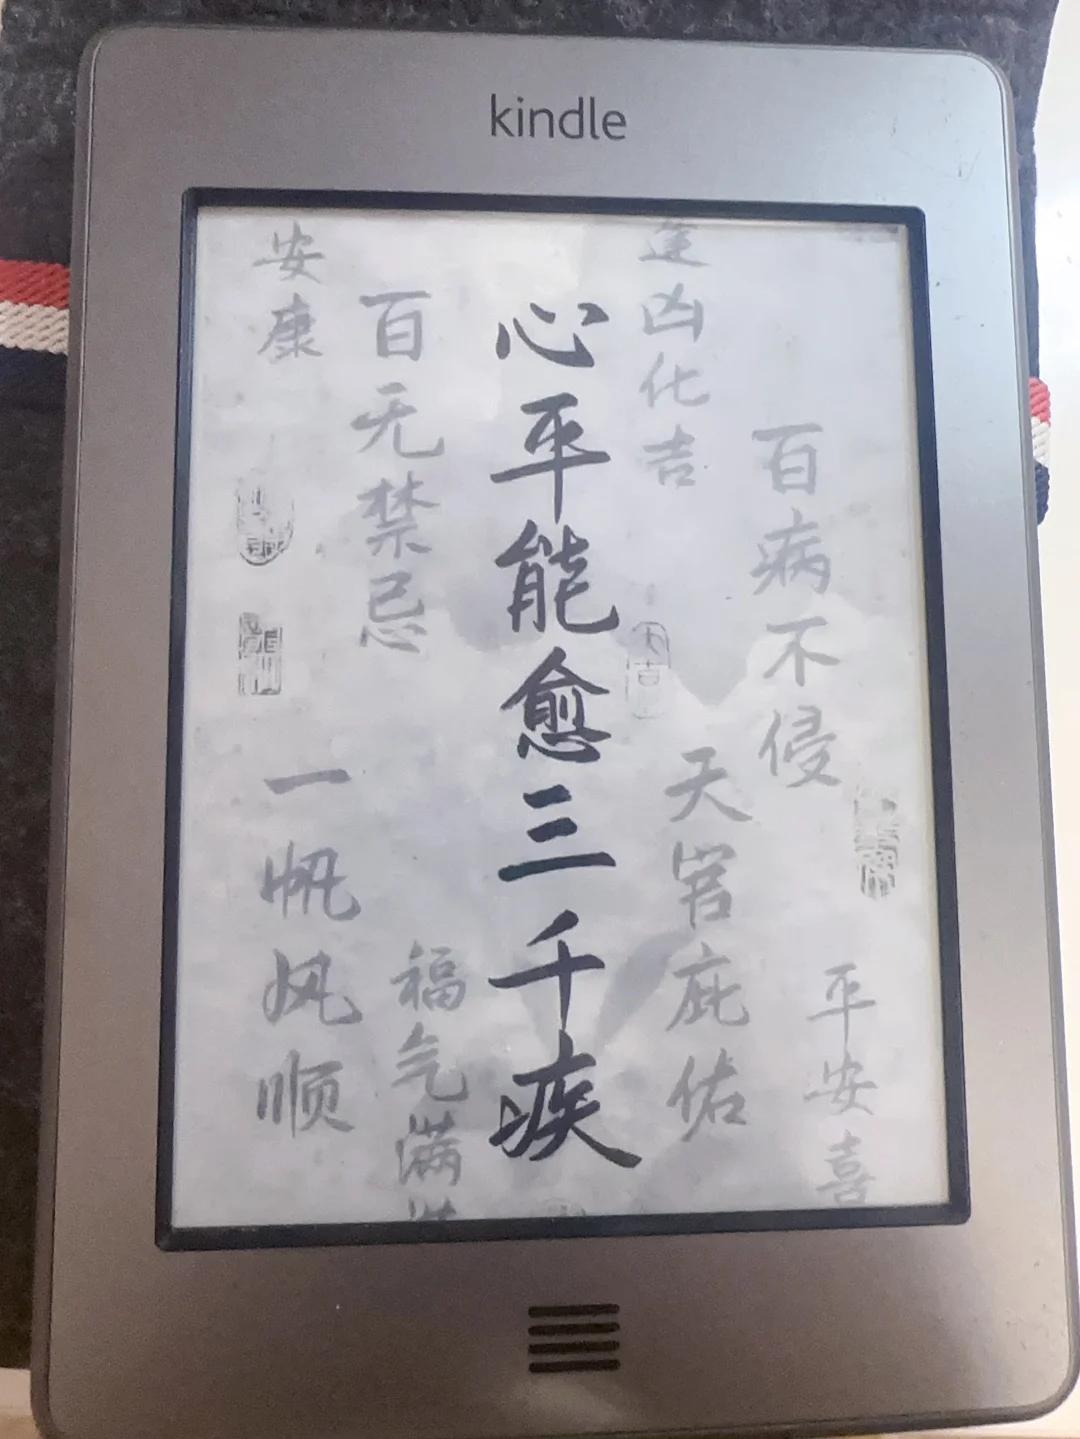 kindle
百病不侵
平安喜
逢凶化吉
大吉
天官庇佑
心平能愈三千疾
百无禁忌
福气满
安康
一帆风顺